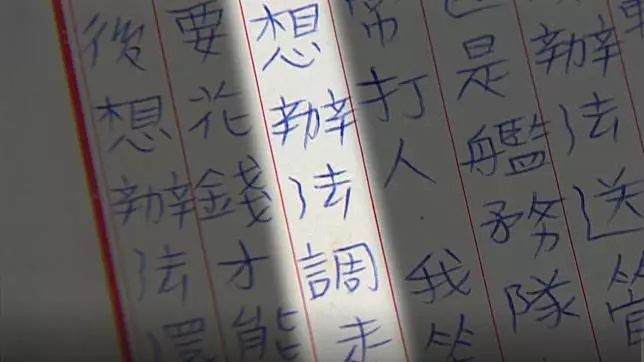 辦法送管
也是艦務隊
常打人.我
想辦法調走
要花錢才能
後想辦法還